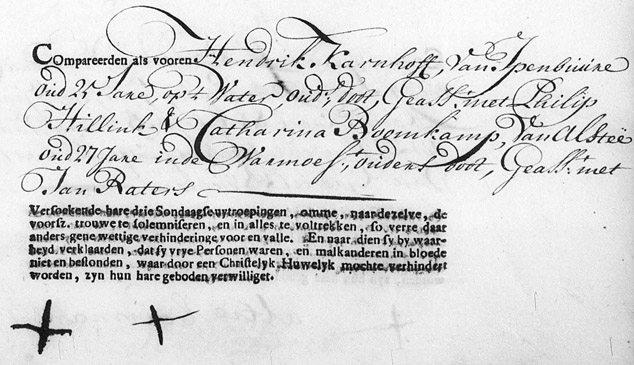 Compareerden als vooren Hendrik Karnhoff, van Ipenbuure
Oud 25 Jare, op 't Water Oud.s doot, Geass.t met Philip
Hillink & Catharina Boomkamp, Van Alsteë
oud 27 Jare in de Warmoes.t, ouders doot, Geass.t met
Jan Raters
Versoekende hare drie Sondaagse uytroepingen, omme, naar dezelve, de
voorsz. trouwe te solemniseren, en in alles te voltrekken, so verre daar
anders gene wettige verhinderinge voor en valle. En naar dien sy by waar-
heyd verklaarden, dat sy vrye Personen waren, en malkanderen in bloede
niet en bestonden, waar door een Christelyk Huwelyk mochte verhindert
worden, zyn hun hare geboden verwilliget.